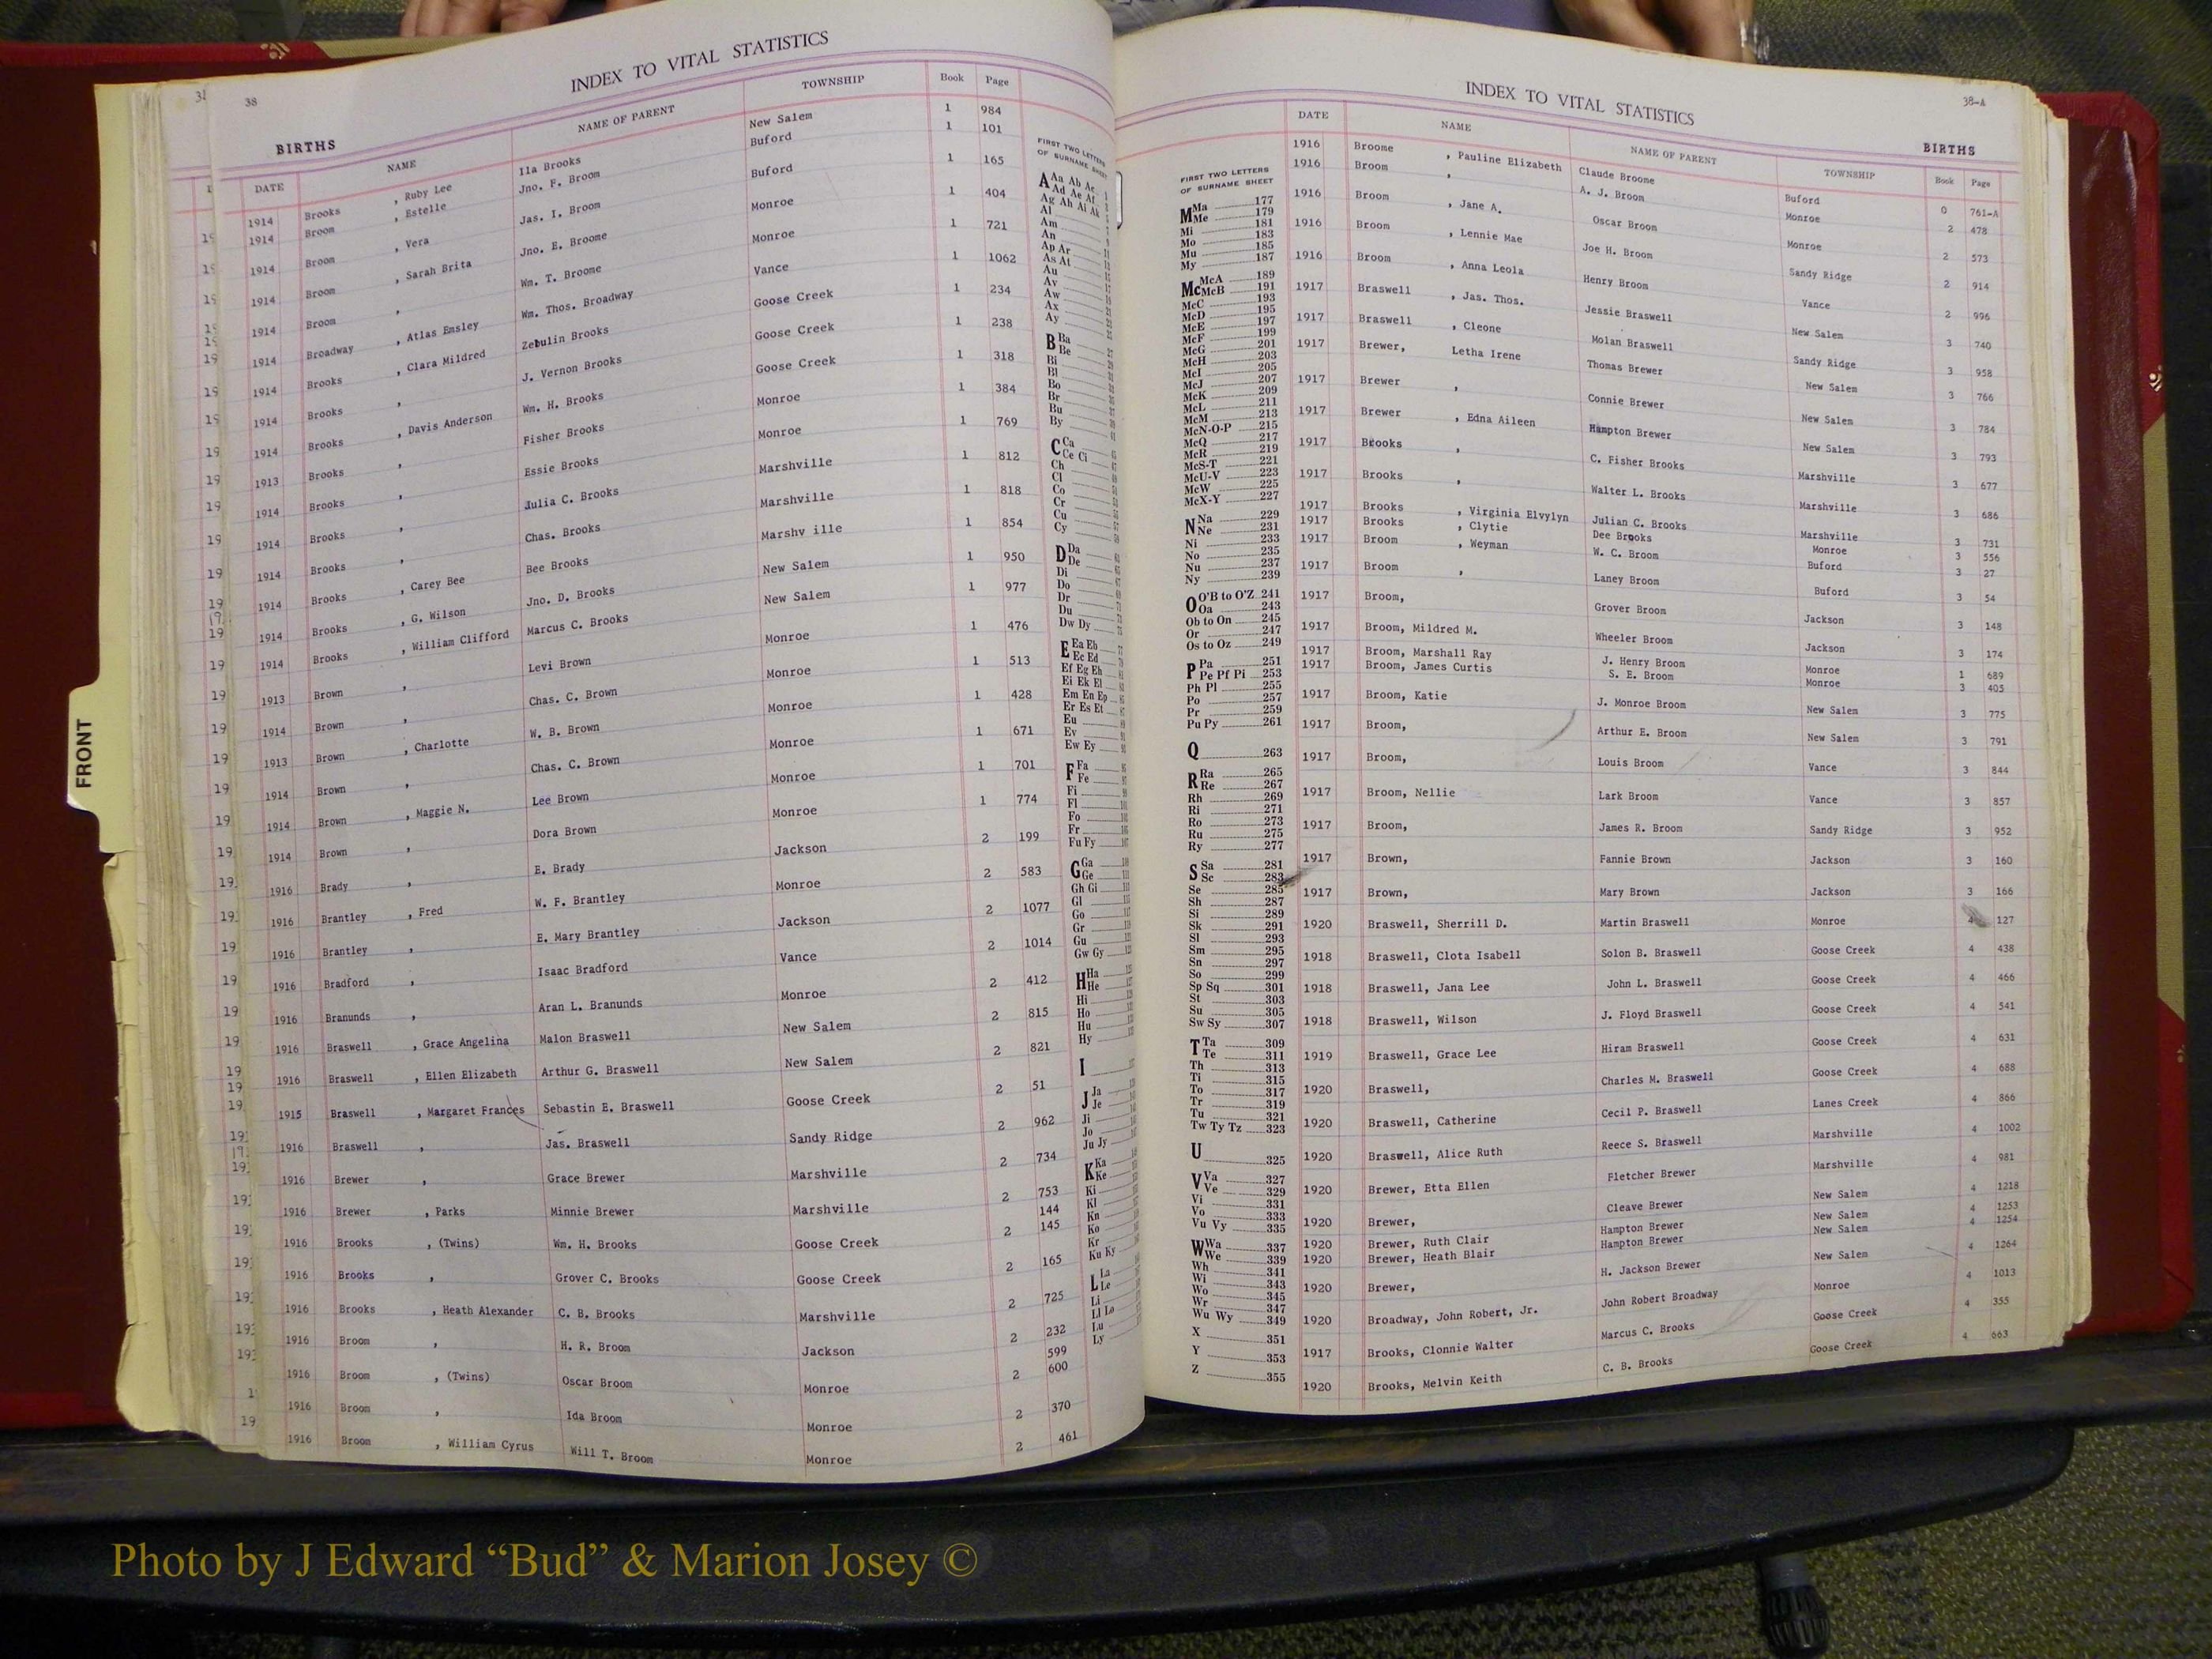 38
INDEX TO VITAL STATISTICS
BIRTHS
DATE NAME NAME OF PARENT TOWNSHIP Book Page
1914 Brooks , Ruby Lee Ila Brooks New Salem 1 984
1914 Broom , Estelle Jno. F. Broom Buford 1 101
1914 Broom , Vera Jas. I. Broom Buford 1 165
1914 Broom , Sarah Brita Jno. E. Broome Monroe 1 404
1914 Broom , Wm. T. Broome Monroe 1 721
1914 Broadway , Atlas Emsley Wm. Thos. Broadway Vance 1 1062
1914 Brooks , Clara Mildred Zebulin Brooks Goose Creek 1 234
1914 Brooks , J. Vernon Brooks Goose Creek 1 238
1914 Brooks , Davis Anderson Wm. H. Brooks Goose Creek 1 318
1913 Brooks , Fisher Brooks Monroe 1 384
1914 Brooks , Essie Brooks Monroe 1 769
1914 Brooks , Julia C. Brooks Marshville 1 812
1914 Brooks , Chas. Brooks Marshville 1 818
1914 Brooks , Carey Bee Bee Brooks Marshv ille 1 854
1914 Brooks , G. Wilson Jno. D. Brooks New Salem 1 950
1914 Brooks , William Clifford Marcus C. Brooks New Salem 1 977
1913 Brown , Levi Brown Monroe 1 476
1914 Brown , Chas. C. Brown Monroe 1 513
1913 Brown , Charlotte W. B. Brown Monroe 1 428
1914 Brown , Chas. C. Brown Monroe 1 671
1914 Brown , Maggie N. Lee Brown Monroe 1 701
1914 Brown , Dora Brown Monroe 1 774
1916 Brady , E. Brady Jackson 2 199
1916 Brantley , Fred W. F. Brantley Monroe 2 583
1916 Brantley , E. Mary Brantley Jackson 2 1077
1916 Bradford , Isaac Bradford Vance 2 1014
1916 Branunds , Aran L. Branunds Monroe 2 412
1916 Braswell , Grace Angelina Malon Braswell New Salem 2 815
1916 Braswell , Ellen Elizabeth Arthur G. Braswell New Salem 2 821
1915 Braswell , Margaret Frances Sebastin E. Braswell Goose Creek 2 51
1916 Braswell , Jas. Braswell Sandy Ridge 2 962
1916 Brewer , Grace Brewer Marshville 2 734
1916 Brewer , Parks Minnie Brewer Marshville 2 753
1916 Brooks , (Twins) Wm. H. Brooks Goose Creek 2 144 145
1916 Brooks , Grover C. Brooks Goose Creek 2 165
1916 Brooks , Heath Alexander C. B. Brooks Marshville 2 725
1916 Broom , H. R. Broom Jackson 2 232
1916 Broom , (Twins) Oscar Broom Monroe 2 599 600
1916 Broom , Ida Broom Monroe 2 370
1916 Broom , William Cyrus Will T. Broom Monroe 2 461
FIRST TWO LETTERS
OF SURNAME SHEET
A Aa Ab Ac
Ad Ae Af
Ag Ah Ai Ak
Al
Am
An
Ap Ar
As At
Au
Av
Aw
Ax
Ay
B Ba
Be
Bi
Bl
Bo
Br
Bu
By
C Ca
Ce Ci
Ch
Cl
Co
Cr
Cu
Cy
D Da
De
Di
Do
Dr
Du
Dw Dy
E Ea Eb
Ec Ed
Ef Eg Eh
Ei Ek El
Em En Ep
Er Es Et
Eu
Ev
Ew Ey
F Fa
Fe
Fi
Fl
Fo
Fr
Fu Fy
G Ga
Ge
Gh Gi
Gl
Go
Gr
Gu
Gw Gy
H Ha
He
Hi
Ho
Hu
Hy
I
J Ja
Je
Ji
Jo
Ju Jy
K Ka
Ke
Ki
Kl
Kn
Ko
Kr
Ku Ky
L La
Le
Li
Ll Lo
Lu
Ly
FRONT
INDEX TO VITAL STATISTICS
38-A
BIRTHS
FIRST TWO LETTERS
OF SURNAME SHEET
M Ma 177
Me 179
Mi 181
Mo 183
Mu 185
My 187
Mc McA 189
McB 191
McC 193
McD 195
McE 197
McF 199
McG 201
McH 203
McI 205
McJ 207
McK 209
McL 211
McM 213
McN-O-P 215
McQ 217
McR 219
McS-T 221
McU-V 223
McW 225
McX-Y 227
N Na 229
Ne 231
Ni 233
No 235
Nu 237
Ny 239
O O'B to O'Z 241
Oa 243
Ob to On 245
Or 247
Os to Oz 249
P Pa 251
Pe Pf Pi 253
Ph Pl 255
Po 257
Pr 259
Pu Py 261
Q 263
R Ra 265
Re 267
Rh 269
Ri 271
Ro 273
Ru 275
Ry 277
S Sa 281
Sc 283
Se 285
Sh 287
Si 289
Sk 291
Sl 293
Sm 295
Sn 297
So 299
Sp Sq 301
St 303
Su 305
Sw Sy 307
T Ta 309
Te 311
Th 313
Ti 315
To 317
Tr 319
Tu 321
Tw Ty Tz 323
U 325
V Va 327
Ve 329
Vi 331
Vo 333
Vu Vy 335
W Wa 337
We 339
Wh 341
Wi 343
Wo 345
Wr 347
Wu Wy 349
X 351
Y 353
Z 355
DATE NAME NAME OF PARENT TOWNSHIP Book Page
1916 Broome , Pauline Elizabeth Claude Broome Buford 0 761-A
1916 Broom , A. J. Broom Monroe 2 478
1916 Broom , Jane A. Oscar Broom Monroe 2 573
1916 Broom , Lennie Mae Joe H. Broom Sandy Ridge 2 914
1916 Broom , Anna Leola Henry Broom Vance 2 996
1917 Braswell , Jas. Thos. Jessie Braswell New Salem 3 740
1917 Braswell , Cleone Molan Braswell Sandy Ridge 3 958
1917 Brewer, Letha Irene Thomas Brewer New Salem 3 766
1917 Brewer , Connie Brewer New Salem 3 784
1917 Brewer , Edna Aileen Hampton Brewer New Salem 3 793
1917 Brooks , C. Fisher Brooks Marshville 3 677
1917 Brooks , Walter L. Brooks Marshville 3 686
1917 Brooks , Virginia Elvylyn Julian C. Brooks Marshville 3 731
1917 Brooks , Clytie Dee Brooks Monroe 3 556
1917 Broom , Weyman W. C. Broom Buford 3 27
1917 Broom , Laney Broom Buford 3 54
1917 Broom, Grover Broom Jackson 3 148
1917 Broom, Mildred M. Wheeler Broom Jackson 3 174
1917 Broom, Marshall Ray J. Henry Broom Monroe 1 689
1917 Broom, James Curtis S. E. Broom Monroe 3 405
1917 Broom, Katie J. Monroe Broom New Salem 3 775
1917 Broom, Arthur E. Broom New Salem 3 791
1917 Broom, Louis Broom Vance 3 844
1917 Broom, Nellie Lark Broom Vance 3 857
1917 Broom, James R. Broom Sandy Ridge 3 952
1917 Brown, Fannie Brown Jackson 3 160
1917 Brown, Mary Brown Jackson 3 166
1920 Braswell, Sherrill D. Martin Braswell Monroe 4 127
1918 Braswell, Clota Isabell Solon B. Braswell Goose Creek 4 438
1918 Braswell, Jana Lee John L. Braswell Goose Creek 4 466
1918 Braswell, Wilson J. Floyd Braswell Goose Creek 4 541
1919 Braswell, Grace Lee Hiram Braswell Goose Creek 4 631
1920 Braswell, Charles M. Braswell Goose Creek 4 688
1920 Braswell, Catherine Cecil P. Braswell Lanes Creek 4 866
1920 Braswell, Alice Ruth Reece S. Braswell Marshville 4 1002
1920 Brewer, Etta Ellen Fletcher Brewer Marshville 4 981
1920 Brewer, Cleave Brewer New Salem 4 1218
1920 Brewer, Ruth Clair Hampton Brewer New Salem 4 1253
1920 Brewer, Heath Blair Hampton Brewer New Salem 4 1254
1920 Brewer, H. Jackson Brewer New Salem 4 1264
1920 Broadway, John Robert, Jr. John Robert Broadway Monroe 4 1013
1917 Brooks, Clonnie Walter Marcus C. Brooks Goose Creek 4 355
1920 Brooks, Melvin Keith C. B. Brooks Goose Creek 4 663
Photo by J Edward “Bud” & Marion Josey ©